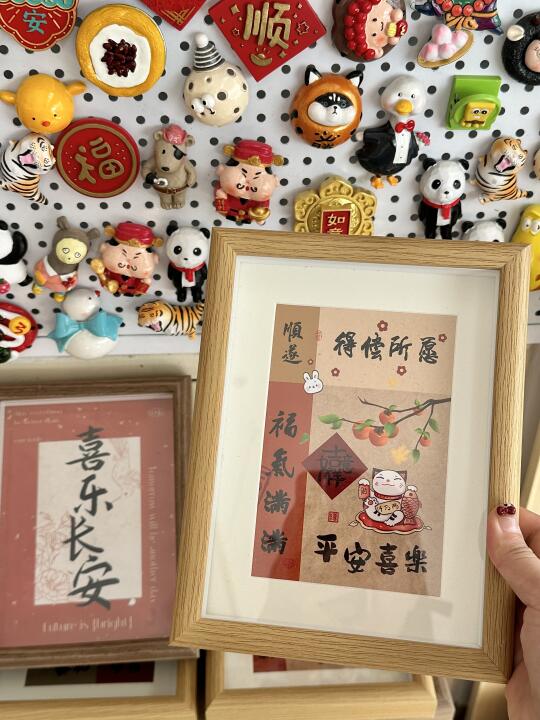 安
顺
福
如意
順遂
得偿所愿
福氣滿滿
平安喜樂
喜乐长安
Future is [bright]